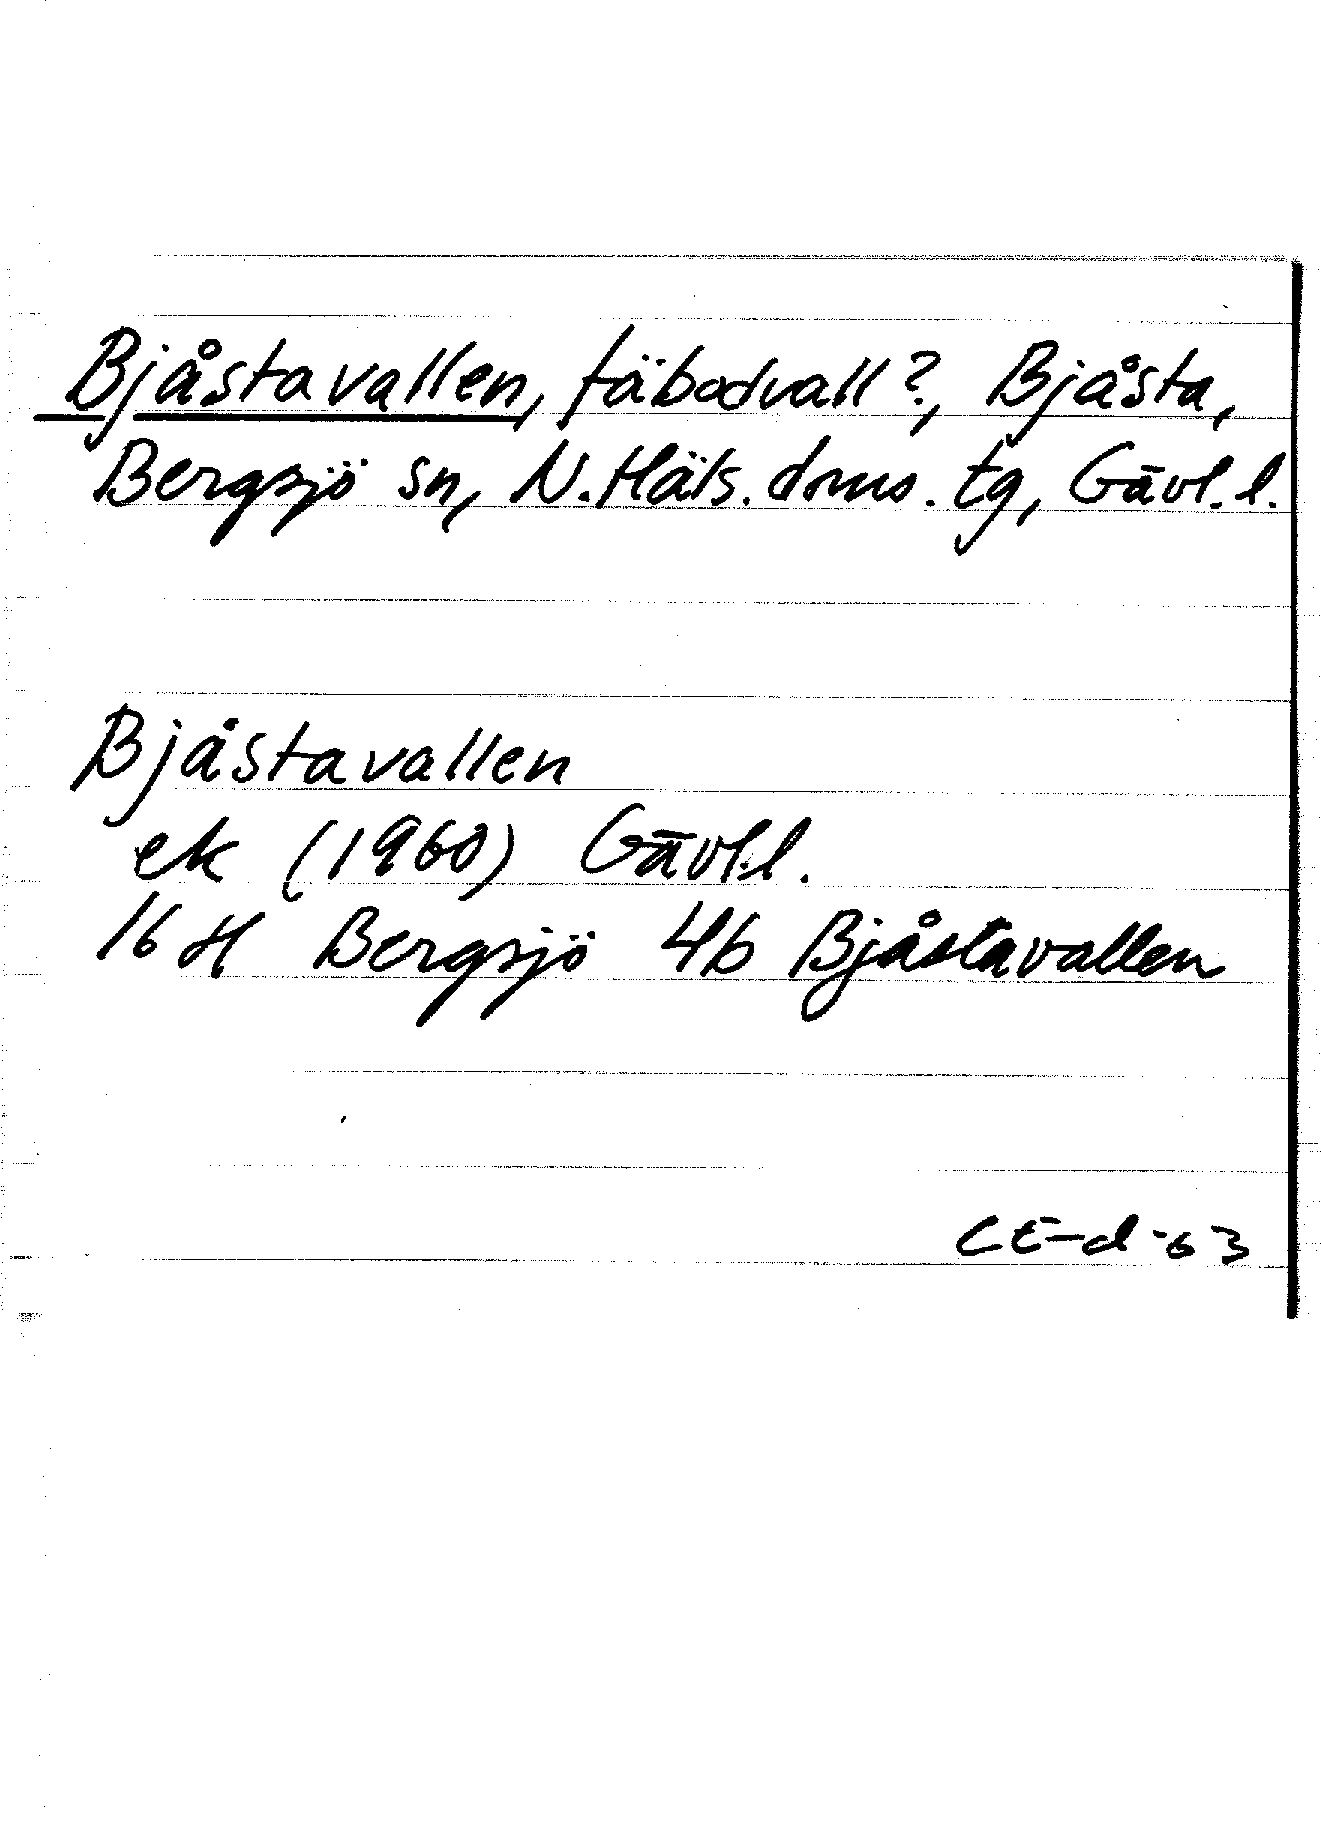 Bjåstavallen, fäbodvall?, Bjåsta,
Bergsjö sn, N. Häls. doms. tg, Gävl. l.
Bjåstavallen
ek (1960) Gävl. l.
16 H Bergsjö 4b Bjåstavallen
CE-d -63